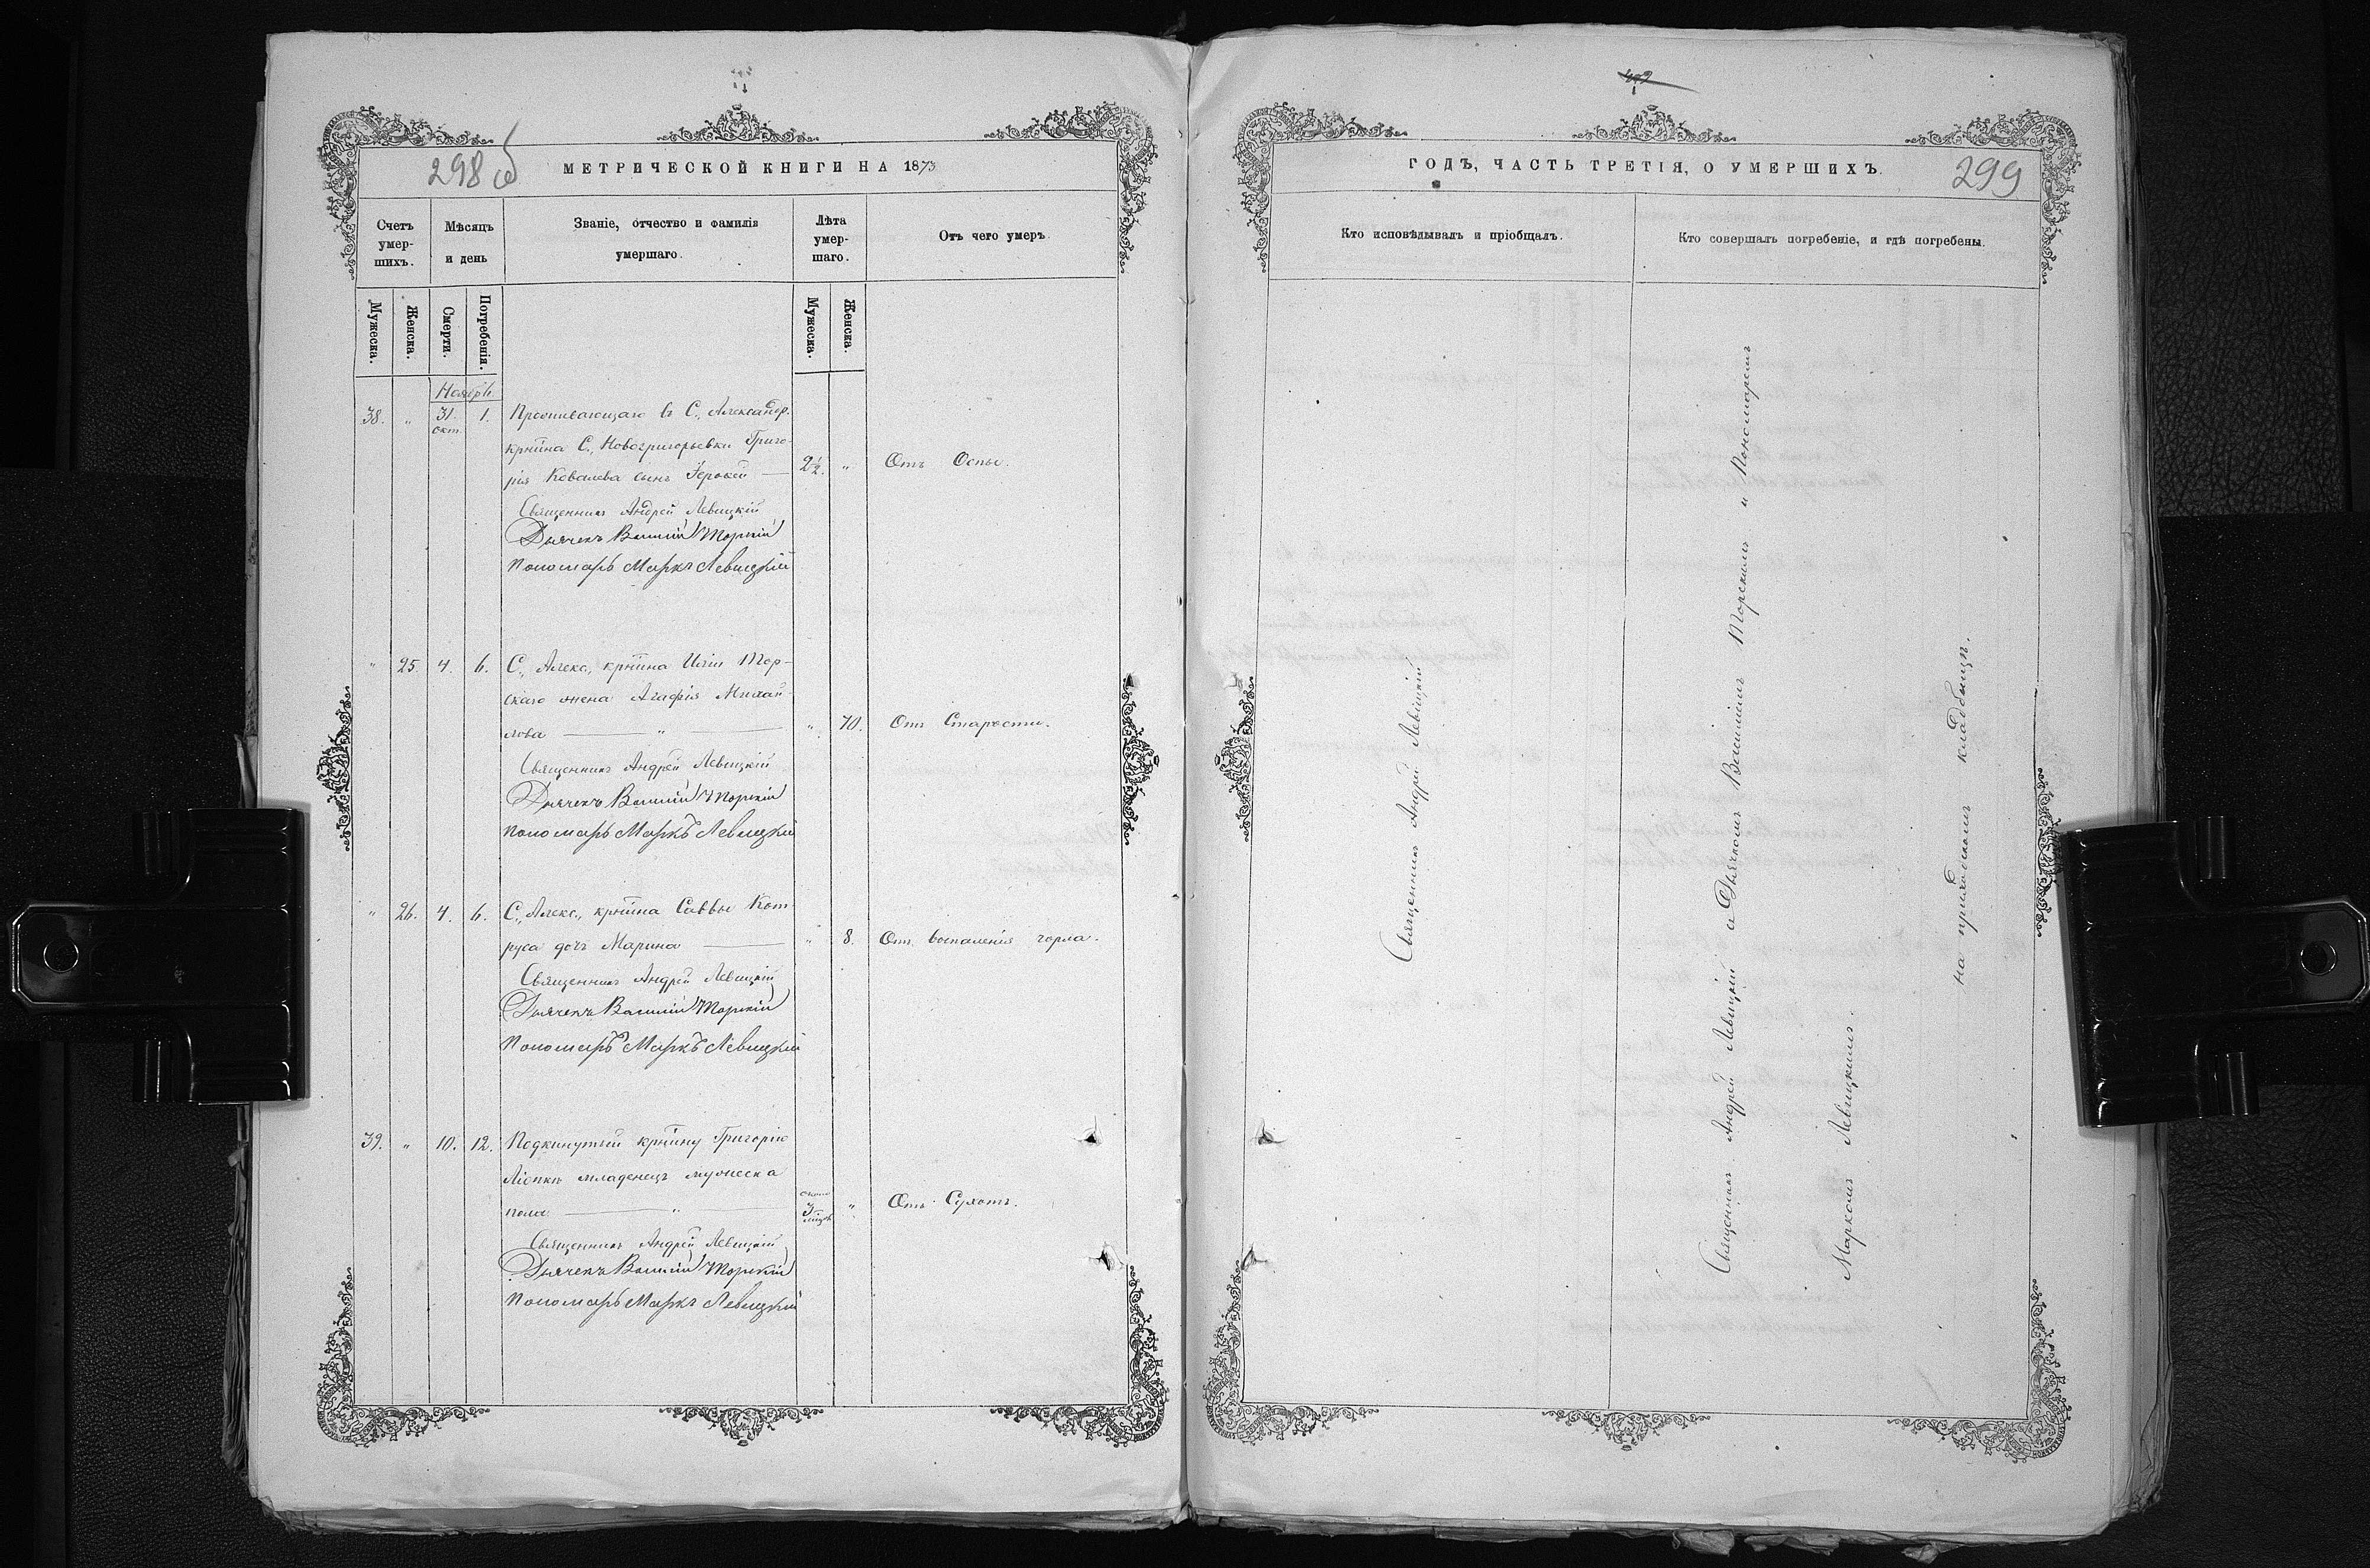 298 об
МЕТРИЧЕСКОЙ КНИГИ НА 1873
Счетъ умер-шихъ.
Мѣсяцъ и день
Званіе, отчество и фамилія умершаго.
Лѣта умер-шаго.
Отъ чего умеръ.
Мужеска.
Женска.
Смерти.
Погребенія.
Мужеска.
Женска.
Ноябрь
38. " 31. окт. 1. Проживающаго въ С., Александр.
крѣтина С., Новогригорьевки Григо-
рія Ковалева сынъ — 2½. " Отъ Оспы.
Священникъ Андрей Левицкій
Дьячекъ Василій Торскій
Пономарь Маркъ Левицкій
" 25. 4. 6. С., Алекс., крѣтина Иліи Тор-
скаго жена Агафія Михай-
лова — " — " 70. Отъ Старости.
Священникъ Андрей Левицкій
Дьячекъ Василій Торскій
Пономарь Маркъ Левицкій
" 26. 4. 6. С., Алекс., крѣтина Саввы Кот-
руса дочь Марина — " 8. Отъ воспаленія горла.
Священникъ Андрей Левицкій
Дьячекъ Василій Торскій
Пономарь Маркъ Левицкій
39. " 10. 12. Подкинутый крѣтину Григорію
младенецъ мужеска
пола — " — около 3 мѣсц. " Отъ Сухотъ.
Священникъ Андрей Левицкій
Дьячекъ Василій Торскій
Пономарь Маркъ Левицкій
ГОДЪ, ЧАСТЬ ТРЕТІЯ, О УМЕРШИХЪ.
299
Кто исповѣдывалъ и пріобщалъ.
Кто совершалъ погребеніе, и гдѣ погребены.
Священникъ Андрей Левицкій
Священникъ Андрей Левицкій съ Дьячкомъ Василіемъ Торскимъ и Пономаремъ
Маркомъ Левицкимъ.
на приходскомъ кладбищѣ.